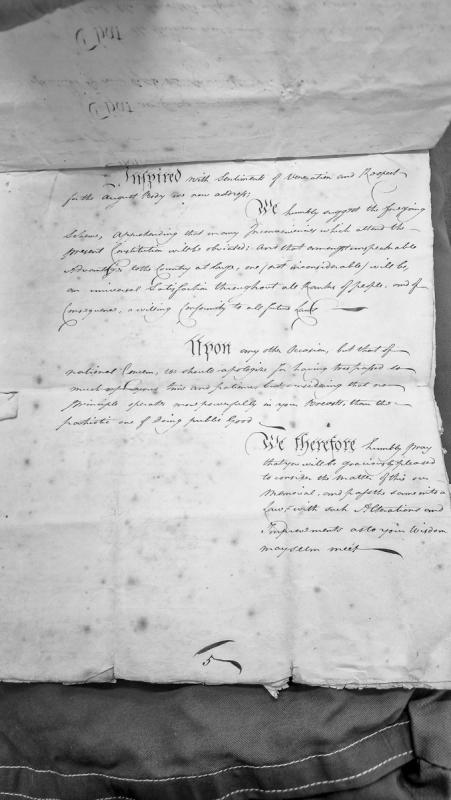 That
That
Inspired with Sentiments of Veneration and Respect
for the August Body we now address;
We humbly suggest the foregoing
Scheme, Apprehending that many Inconveniencies which attend the
present Constitution will be obviated: And that amongst unspeakable
Advantages to the Country at large, one (not inconsiderable) will be,
an universal Satisfaction throughout all Ranks of people, and of
Consequence, a willing Conformity to all future Laws
Upon any other Occasion, but that of
national Concern, we should apologize for having trespassed so
much upon your time and patience, but considering that no
principle operates more powerfully in your Breasts, than the
patriotic one of doing public Good
We therefore humbly pray
that you will be graciously pleased
to consider the matter of this our
Memorial, and pass the same into a
Law, with such Alterations and
Improvements as to your Wisdom
may seem meet
5